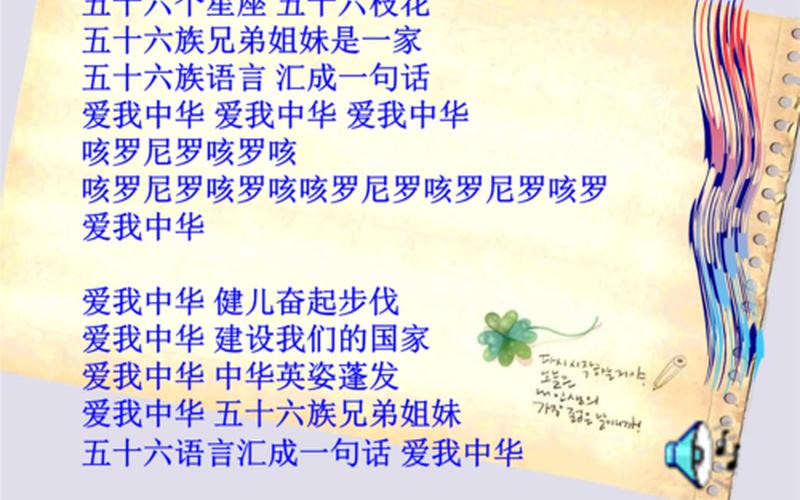 五十六个星座 五十六枝花
五十六族兄弟姐妹是一家
五十六族语言 汇成一句话
爱我中华 爱我中华 爱我中华
咳罗尼罗咳罗咳
咳罗尼罗咳罗咳咳罗尼罗咳罗尼罗咳罗
爱我中华
爱我中华 健儿奋起步伐
爱我中华 建设我们的国家
爱我中华 中华英姿蓬发
爱我中华 五十六族兄弟姐妹
五十六语言汇成一句话 爱我中华
다시 시작하는거야
오늘은
내 인생의
가장 젊은 날이니까!